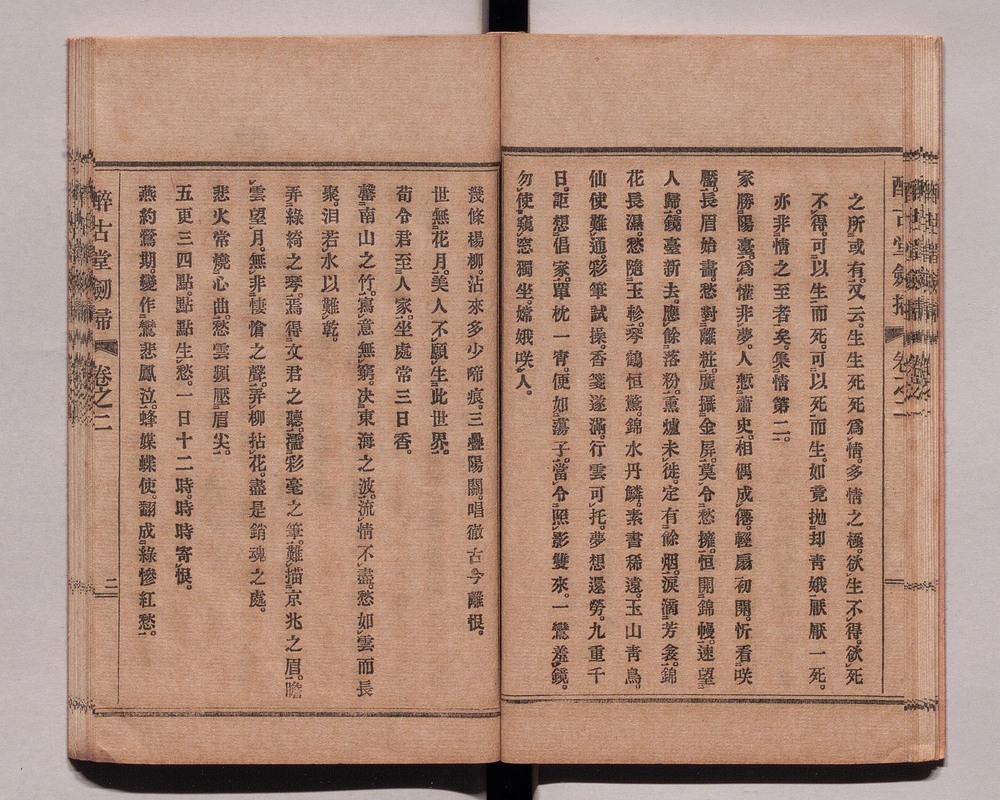 醉古堂劒掃
卷之二
之所或有。又云。生生死死爲情。多情之極。欲生不得。欲死
不得。可以生而死。可以死而生。如竟抛却靑娥。厭厭一死。
亦非情之至者矣。集情第二。
家勝陽臺。爲懽非夢。人慙蕭史。相偶成僊。輕扇初開。忻看咲
靨。長眉始畵。愁對離粧。廣攝金屏。莫令愁擁。恒開錦幔。速望
人歸。鏡臺新去。應餘落粉。熏爐未徙。定有餘烟。淚滴芳衾。錦
花長濕。愁隨玉軫。琴鶴恒驚。錦水丹鱗。素書稀遠。玉山靑鳥。
仙使難通。彩筆試操。香箋遂滿。行雲可托。夢想還勞。九重千
日。詎想倡家。單枕一宵。便如蕩子。當令照影雙來。一鸞羞鏡。
勿使窺窓獨坐。嫦娥咲人。
幾條楊柳。沾來多少啼痕。三疊陽關。唱徹古今離恨。
世無花月。美人不願生此世界。
荀令君至人家。坐處常三日香。
罄南山之竹。寫意無窮。决東海之波。流情不盡。愁如雲而長
聚。泪若水以難乾。
弄綠綺之琴。焉得文君之聽。濡彩毫之筆。難描京兆之眉。瞻
雲望月。無非悽愴之聲。弄柳拈花。盡是銷魂之處。
悲火常燒心曲。愁雲頻壓眉尖。
五更三四點。點點生愁。一日十二時。時時寄恨。
燕約鶯期。變作鸞悲鳳泣。蜂媒蝶使。翻成綠慘紅愁。
醉古堂劒掃
卷之二
二